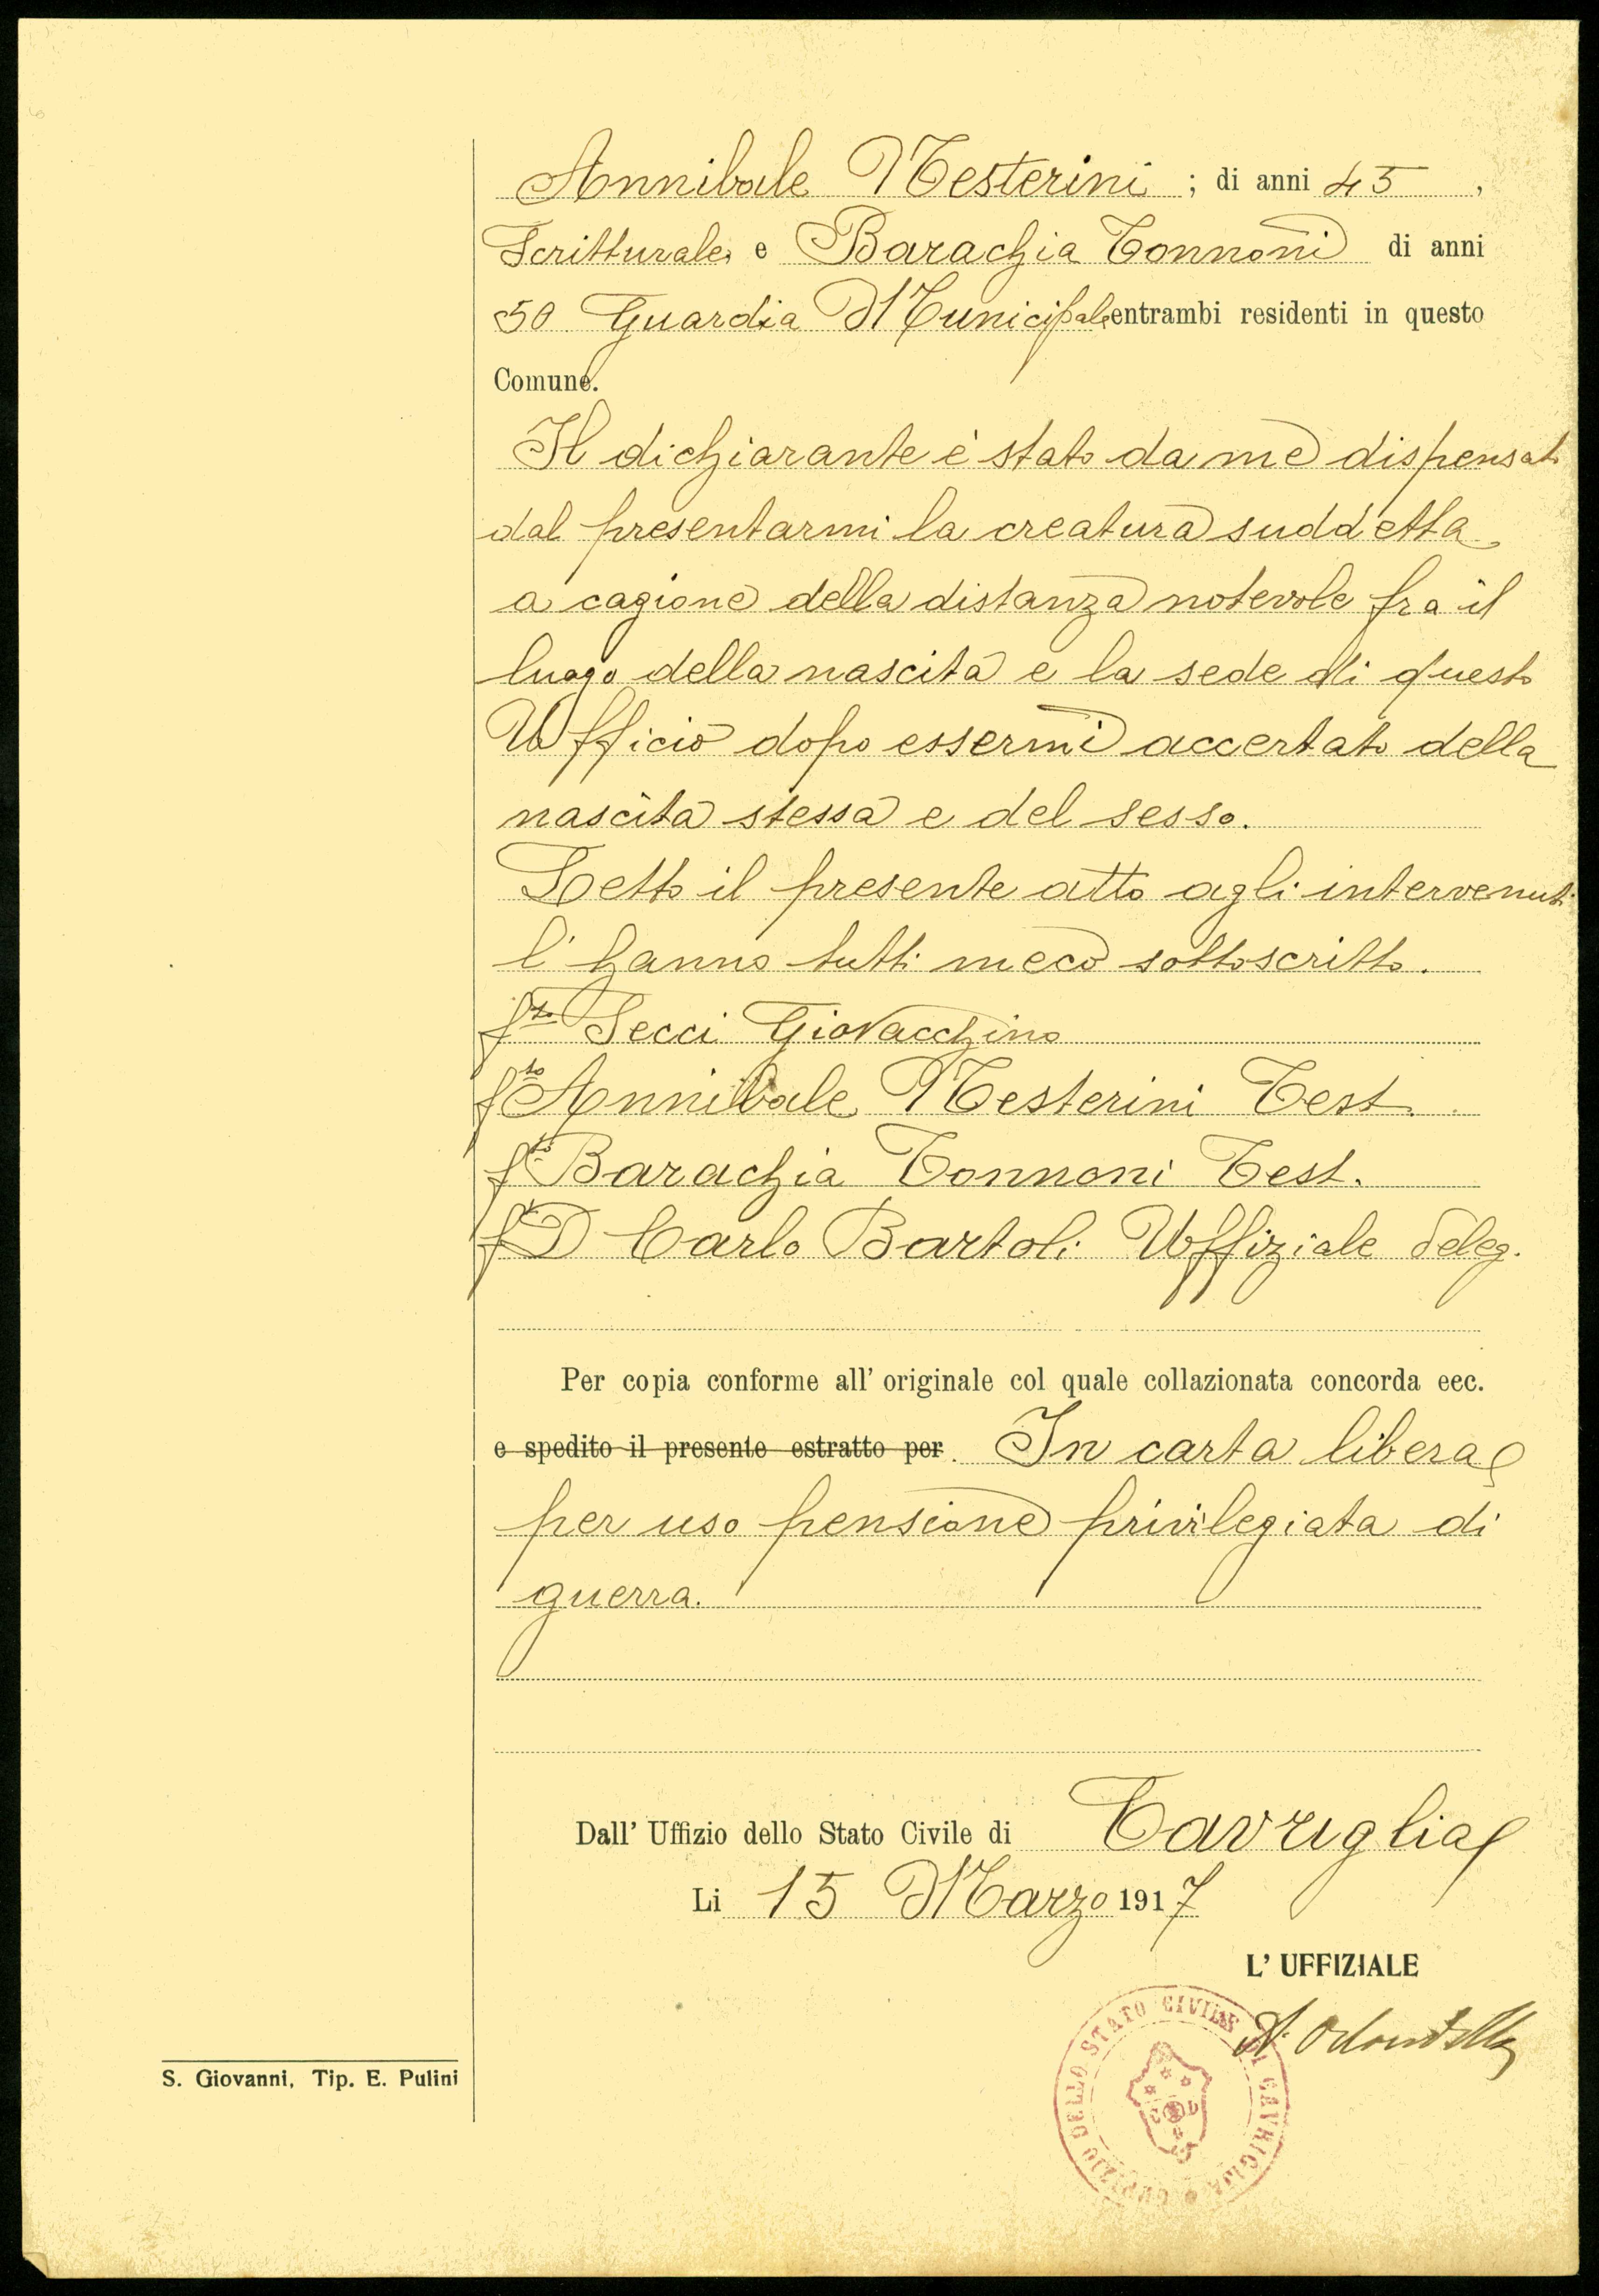 Annibale Nesterini ; di anni 45 ,
Scritturale e Barachia Tonnoni di anni
50 Guardia Municipale entrambi residenti in questo
Comune.
Il dichiarante è stato da me dispensato
dal presentarmi la creatura suddetta
a cagione della distanza notevole fra il
luogo della nascita e la sede di questo
Ufficio dopo essermi accertato della
nascita stessa e del sesso.
Letto il presente atto agli intervenuti
l'hanno tutti meco sottoscritto.
fto Secci Giovacchino
fto Annibale Nesterini Test.
fto Barachia Tonnoni Test.
fto D Carlo Bartoli Uffiziale deleg.
Per copia conforme all' originale col quale collazionata concorda eec.
e spedito il presente estratto per. In carta libera
per uso pensione privilegiata di
guerra.
Dall' Uffizio dello Stato Civile di Cavriglia
Li 15 Marzo 1917
L' UFFIZIALE
UFFIZIO DELLO STATO CIVILE DI CAVRIGLIA
S. Giovanni, Tip. E. Pulini